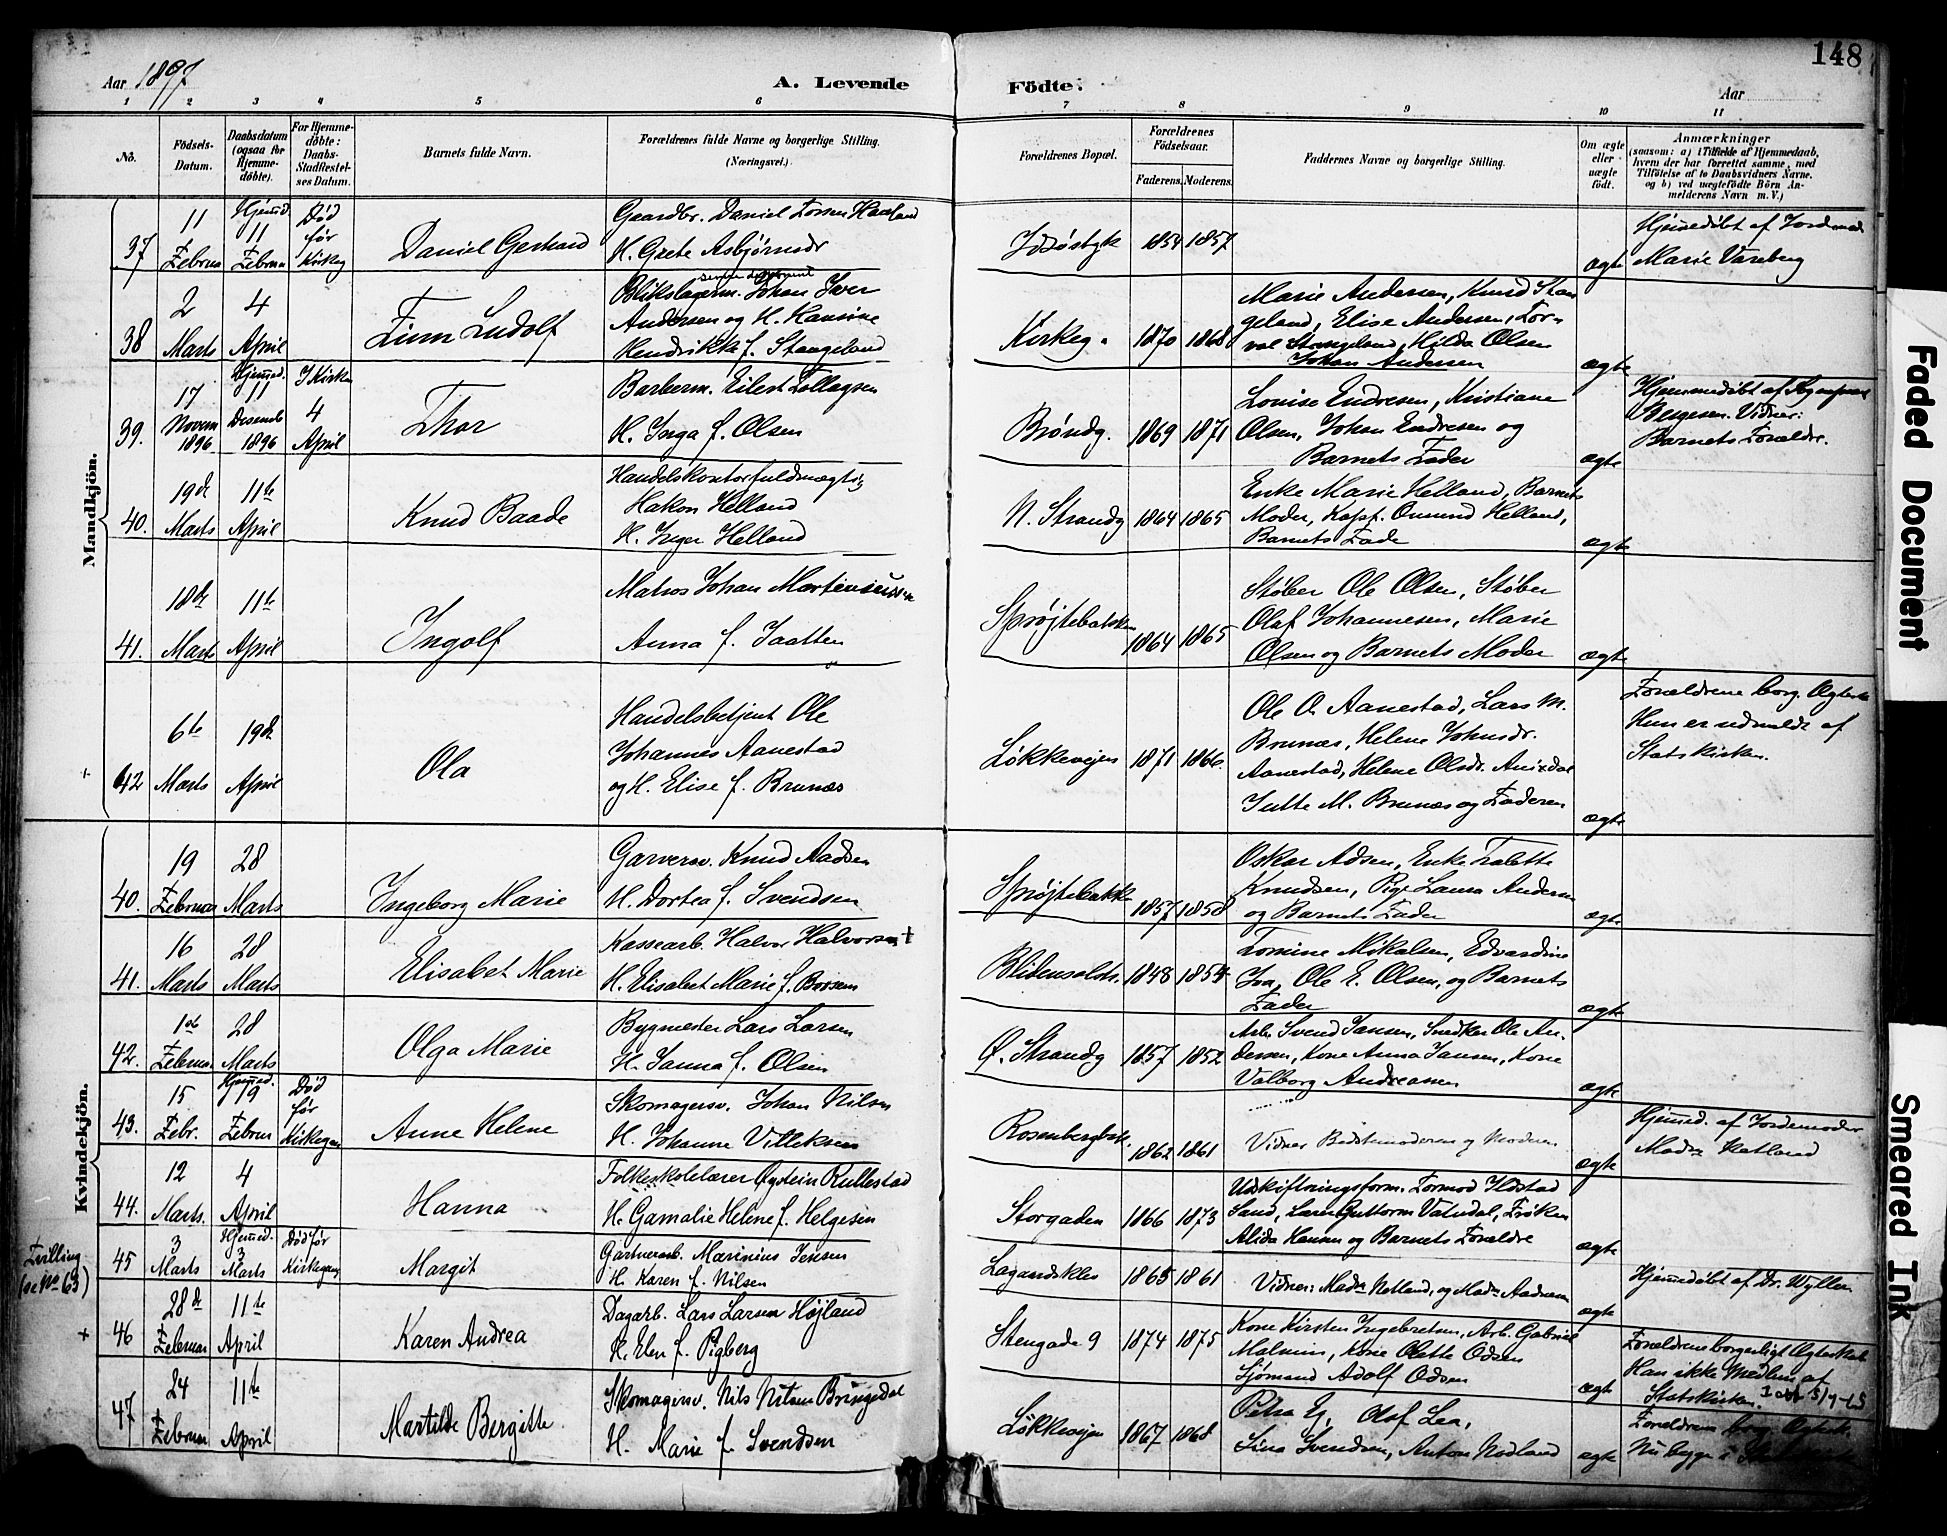 148
Aar 1897
A. Levende
Födte.
Aar
1 2 3 4 5 6 7 8 9 10 11
No.
Födsels-
Datum.
Daabsdatum
(ogsaa for
Hjemme-
döbte).
For Hjemme-
döbte:
Daabs-
Stadfæstel-
ses Datum.
Barnets fulde Navn.
Forældrenes fulde Navne og borgerlige Stilling.
(Næringsvei.)
Forældrenes Bopæl.
Forældrenes
Födselsaar.
Faderens. Moderens.
Faddernes Navne og borgerlige Stilling.
Om ægte
eller
uægte
født.
Anmærkninger
(saasom: a) i Tilfælde af Hjemmedaab,
hvem der har forrettet samme, med
Tilföielse af to Daabsvidners Navne,
og b) ved uægtefödte Börn An-
melderens Navn m. V.)
Mandkjön.
37
11
Februar
Hjemd.
11
Februar
Død
før
Kirkeg
Daniel Gerhard
Gaardbr. Daniel Haaland
H. Grete Asbjørnsdr
1854 1857
ægte
Hjemedöbt af Jordmod
Marie Vareberg
38
2
Marts
4
April
Finn Ludolf
Blikslagerm. Johan Iver
Andersen og H. Hansine
Hendrikke f. Stangeland
Kirkeg.
1870 1868
Marie Andersen, Knud Stan
geland, Elise Andersen, Tor-
val Stangeland, Hilda Olsen
Johan Andersen
ægte
39.
17
Novem
1896
Hjemmed.
11
Desemb
1896
I Kirken
4
April
Thor
Barberm. Eilert Tollagsen
H. Inga f. Olsen
Brøndg.
1869 1871
Louise Endresen, Kristiane
Olsen, Johan Endresen og
Barnets Fader
ægte
Hjemmedöbt af
Bergesen. Vidner:
Barnets Forældre.
40.
19de
Marts
11te
April
Knud Baade
Handelskontorfuldmægtig
Hakon Helland
H. Inger Helland
N. Strandg
1864 1865
Enke Marie Helland, Barnets
Moder, Kapt. Omund Helland,
Barnets Fader
ægte
41.
18de
Marts
11te
April
Ingolf
Matros Johan Martinsussen
Anna f. Jaatten
Sprøjtebakken
1864 1865
Støber Ole Olsen, Støber
Olaf Johannesen, Marie
Olsen og Barnets Moder
ægte
+ 42
6te
Marts
19de
April
Ola
Handelsbetjent Ole
Johannes Aanestad
og H. Elise f. Brunæs
Løkkevejen
1871 1866.
Ole O. Aanestad, Lars M.
Brunæs, Helene Johnsdr.
Aanestad, Helene Olsdr.
Jutte M. Brunæs og Faderen
ægte
Forældrene borg. Ægtesk
Hun er udmeldt af
Statskirken.
Kvindekjön.
40.
19
Februar
28
Marts
Ingeborg Marie
Garversv. Knud Aadsen
H. Dortea f. Svendsen
Sprøjtebakke
1857 1858
Oskar Adsen, Enke Talette
Knudsen, Pige Laura Andersen
og Barnets Fader
ægte
41.
16
Marts
28
Marts
Elisabet Marie
Kassearb. Halvor Halvorsen +
H. Elisabet Marie f. Børsem
Blidensolstr.
1848 1854
Tomine Mikalsen, Edvardine
Iva, Ole E. Olsen, og Barnets
Fader
ægte
42.
1ste
Februar
28
Marts
Olga Marie
Bygmester Lars Larsen
H. Janna f. Olsen
Ø. Strandg
1857 1852
Arb. Svend Jansen, Snedker Ole An-
dersen, Kone Anna Jansen, Kone
Valborg Andreassen
ægte
43.
15
Febr.
Hjemmed.
19
Februar
Død
før
Kirkegan
Anne Helene
Skomagersv. Johan Nilsen
H. Johanne Villeksen
Rosenbergbak.
1862 1861
Vidner Bedstemoderen og Moderen
ægte
Hjemd. af Jordemoder
Madm Netland
44.
12
Marts.
4
April
Hanna
Folkeskolelærer Øystein Rullestad
H. Gamalie Helene f. Helgesen
Storgaden
1866 1873
Udskiftningsform. Tormod
Sand, Lærer Guttorm Vatndal, Frøken
Alida Hansen og Barnets Forældre
ægte
Tvilling
(se No 63)
45
3
Marts
Hjemmed.
3
Marts
Død før
Kirkegang
Margit
Gartnerarb. Marinius Jensen
H. Karen f. Nilsen
1865 1861
Vidner: Madm Netland, og Madm Aadsen
ægte
Hjemmedöbt af Dr. Wyller
+ 46
28de
Februar
11te
April
Karen Andrea
Dagarb. Lars Larsen Højland
H. Elen f. Pigberg
Stengade 9
1874 1875
Kone Kirsten Ingebretsen, Arb. Gabriel
Malmin, Kone Olette Odsen
Sjømand Adolf Odsen
ægte
Forældrene borgerligt Ægtesk
Han ikke Medlem af
Statskirken.
47
24
Februar
11te
April
Martilde Bergitte
Skomagersv. Nils Nilsen Bringedal
H. Marie f. Svendsen
Løkkevejen
1867 1868
Petra Ej, Olaf Lea,
Sina Svendsen, Anton Nodland
ægte
Forældrene borg. Ægtesk.
Nu begge i
Faded Document
Smeared Ink